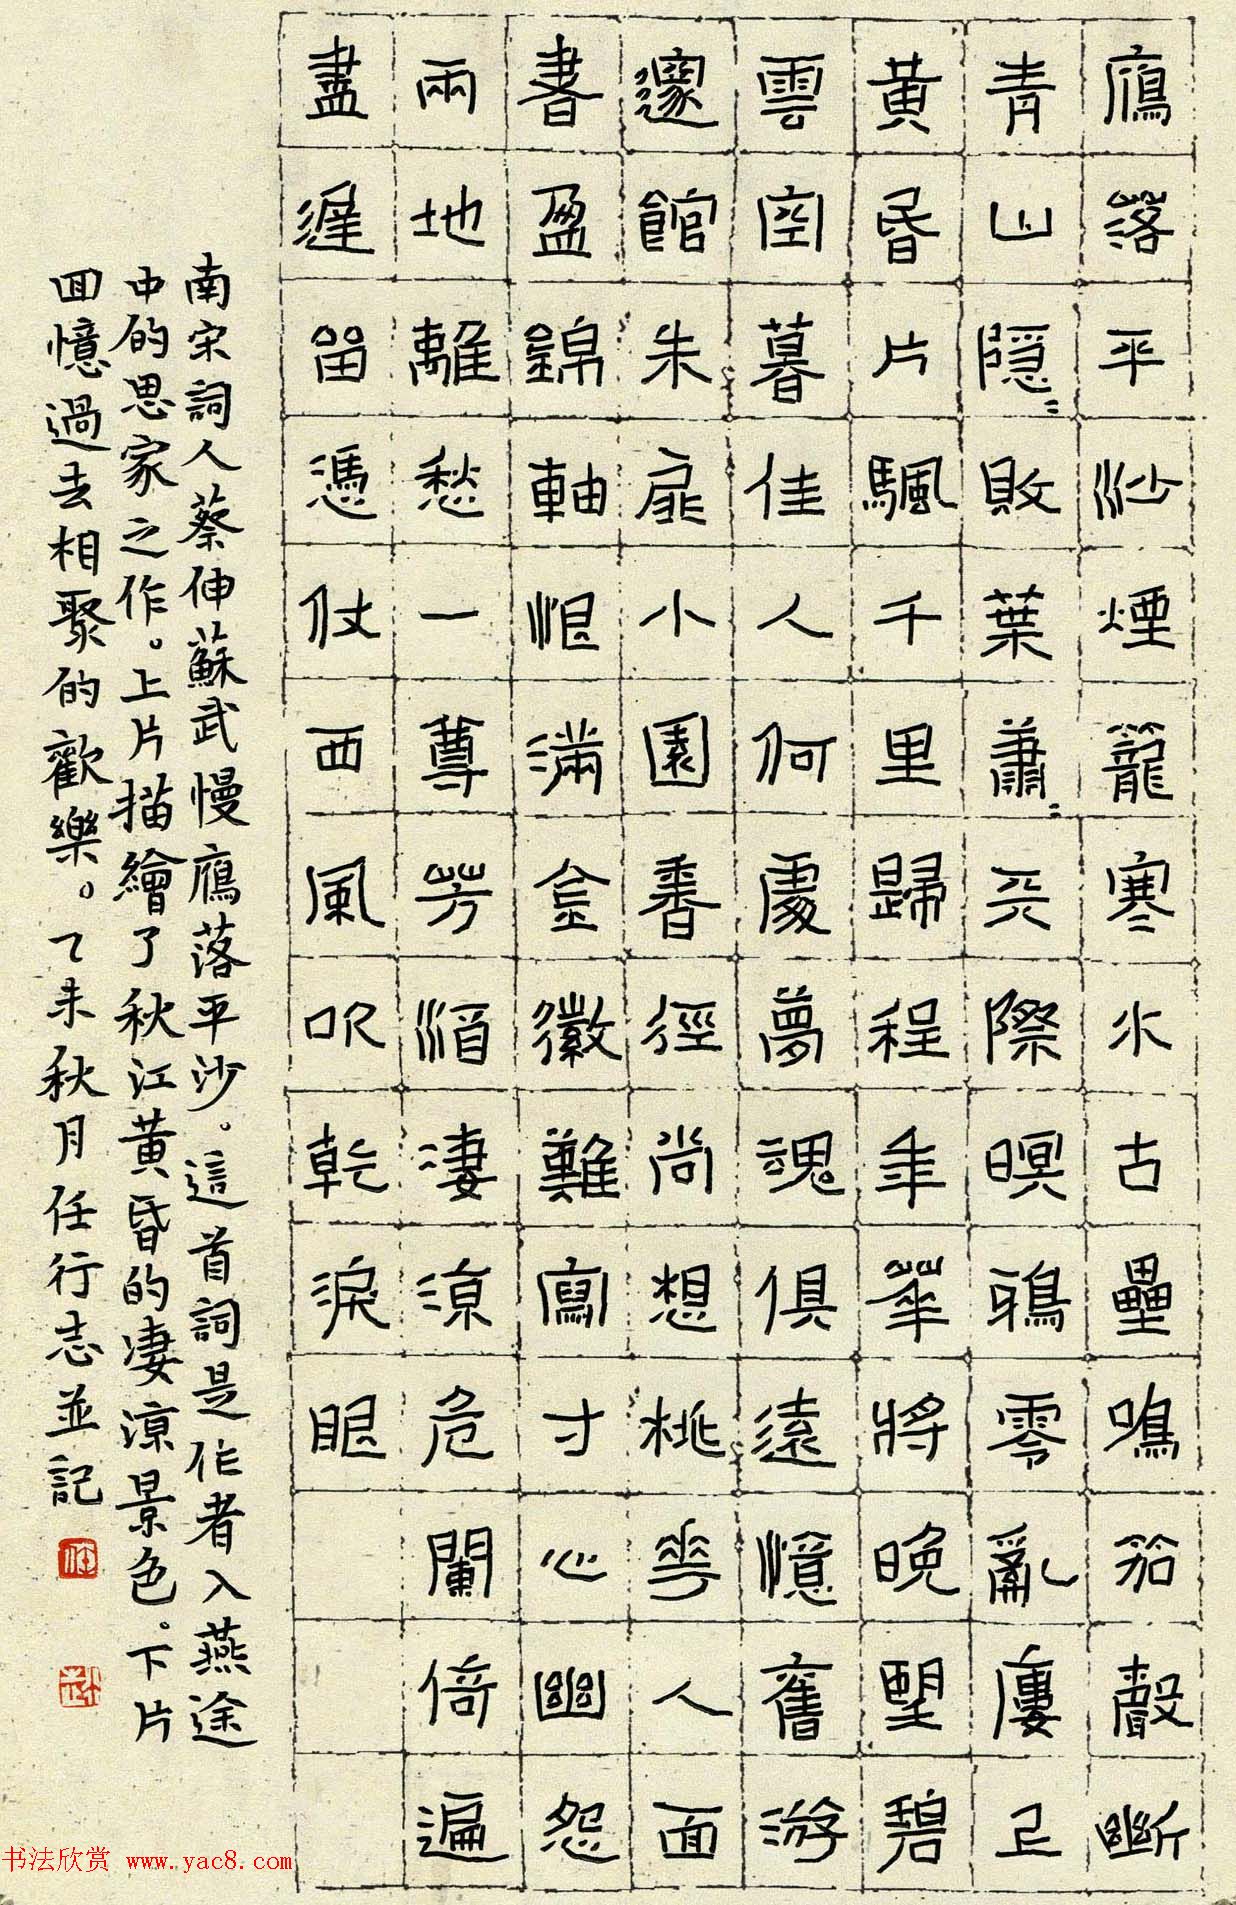 鴈落平沙煙籠寒水古壘鳴笳聲斷
青山隱〻敗葉蕭〻天際暝鴉零亂廔上
黃昏片颿千里歸程年華將晚望碧
雲空暮佳人何處夢魂俱遠憶舊游
邃館朱扉小園香徑尚想桃花人面
書盈錦軸恨滿金徽難寫寸心幽怨
兩地離愁一尊芳酒淒涼危闌倚遍
盡遲留憑仗西風吹乾淚眼
南宋詞人蔡伸蘇武慢鴈落平沙。這首詞是作者入燕途
中的思家之作。上片描繪了秋江黃昏的淒涼景色。下片
回憶過去相聚的歡樂。乙未秋月任行志並記
任
书法欣赏 www.yac8.com